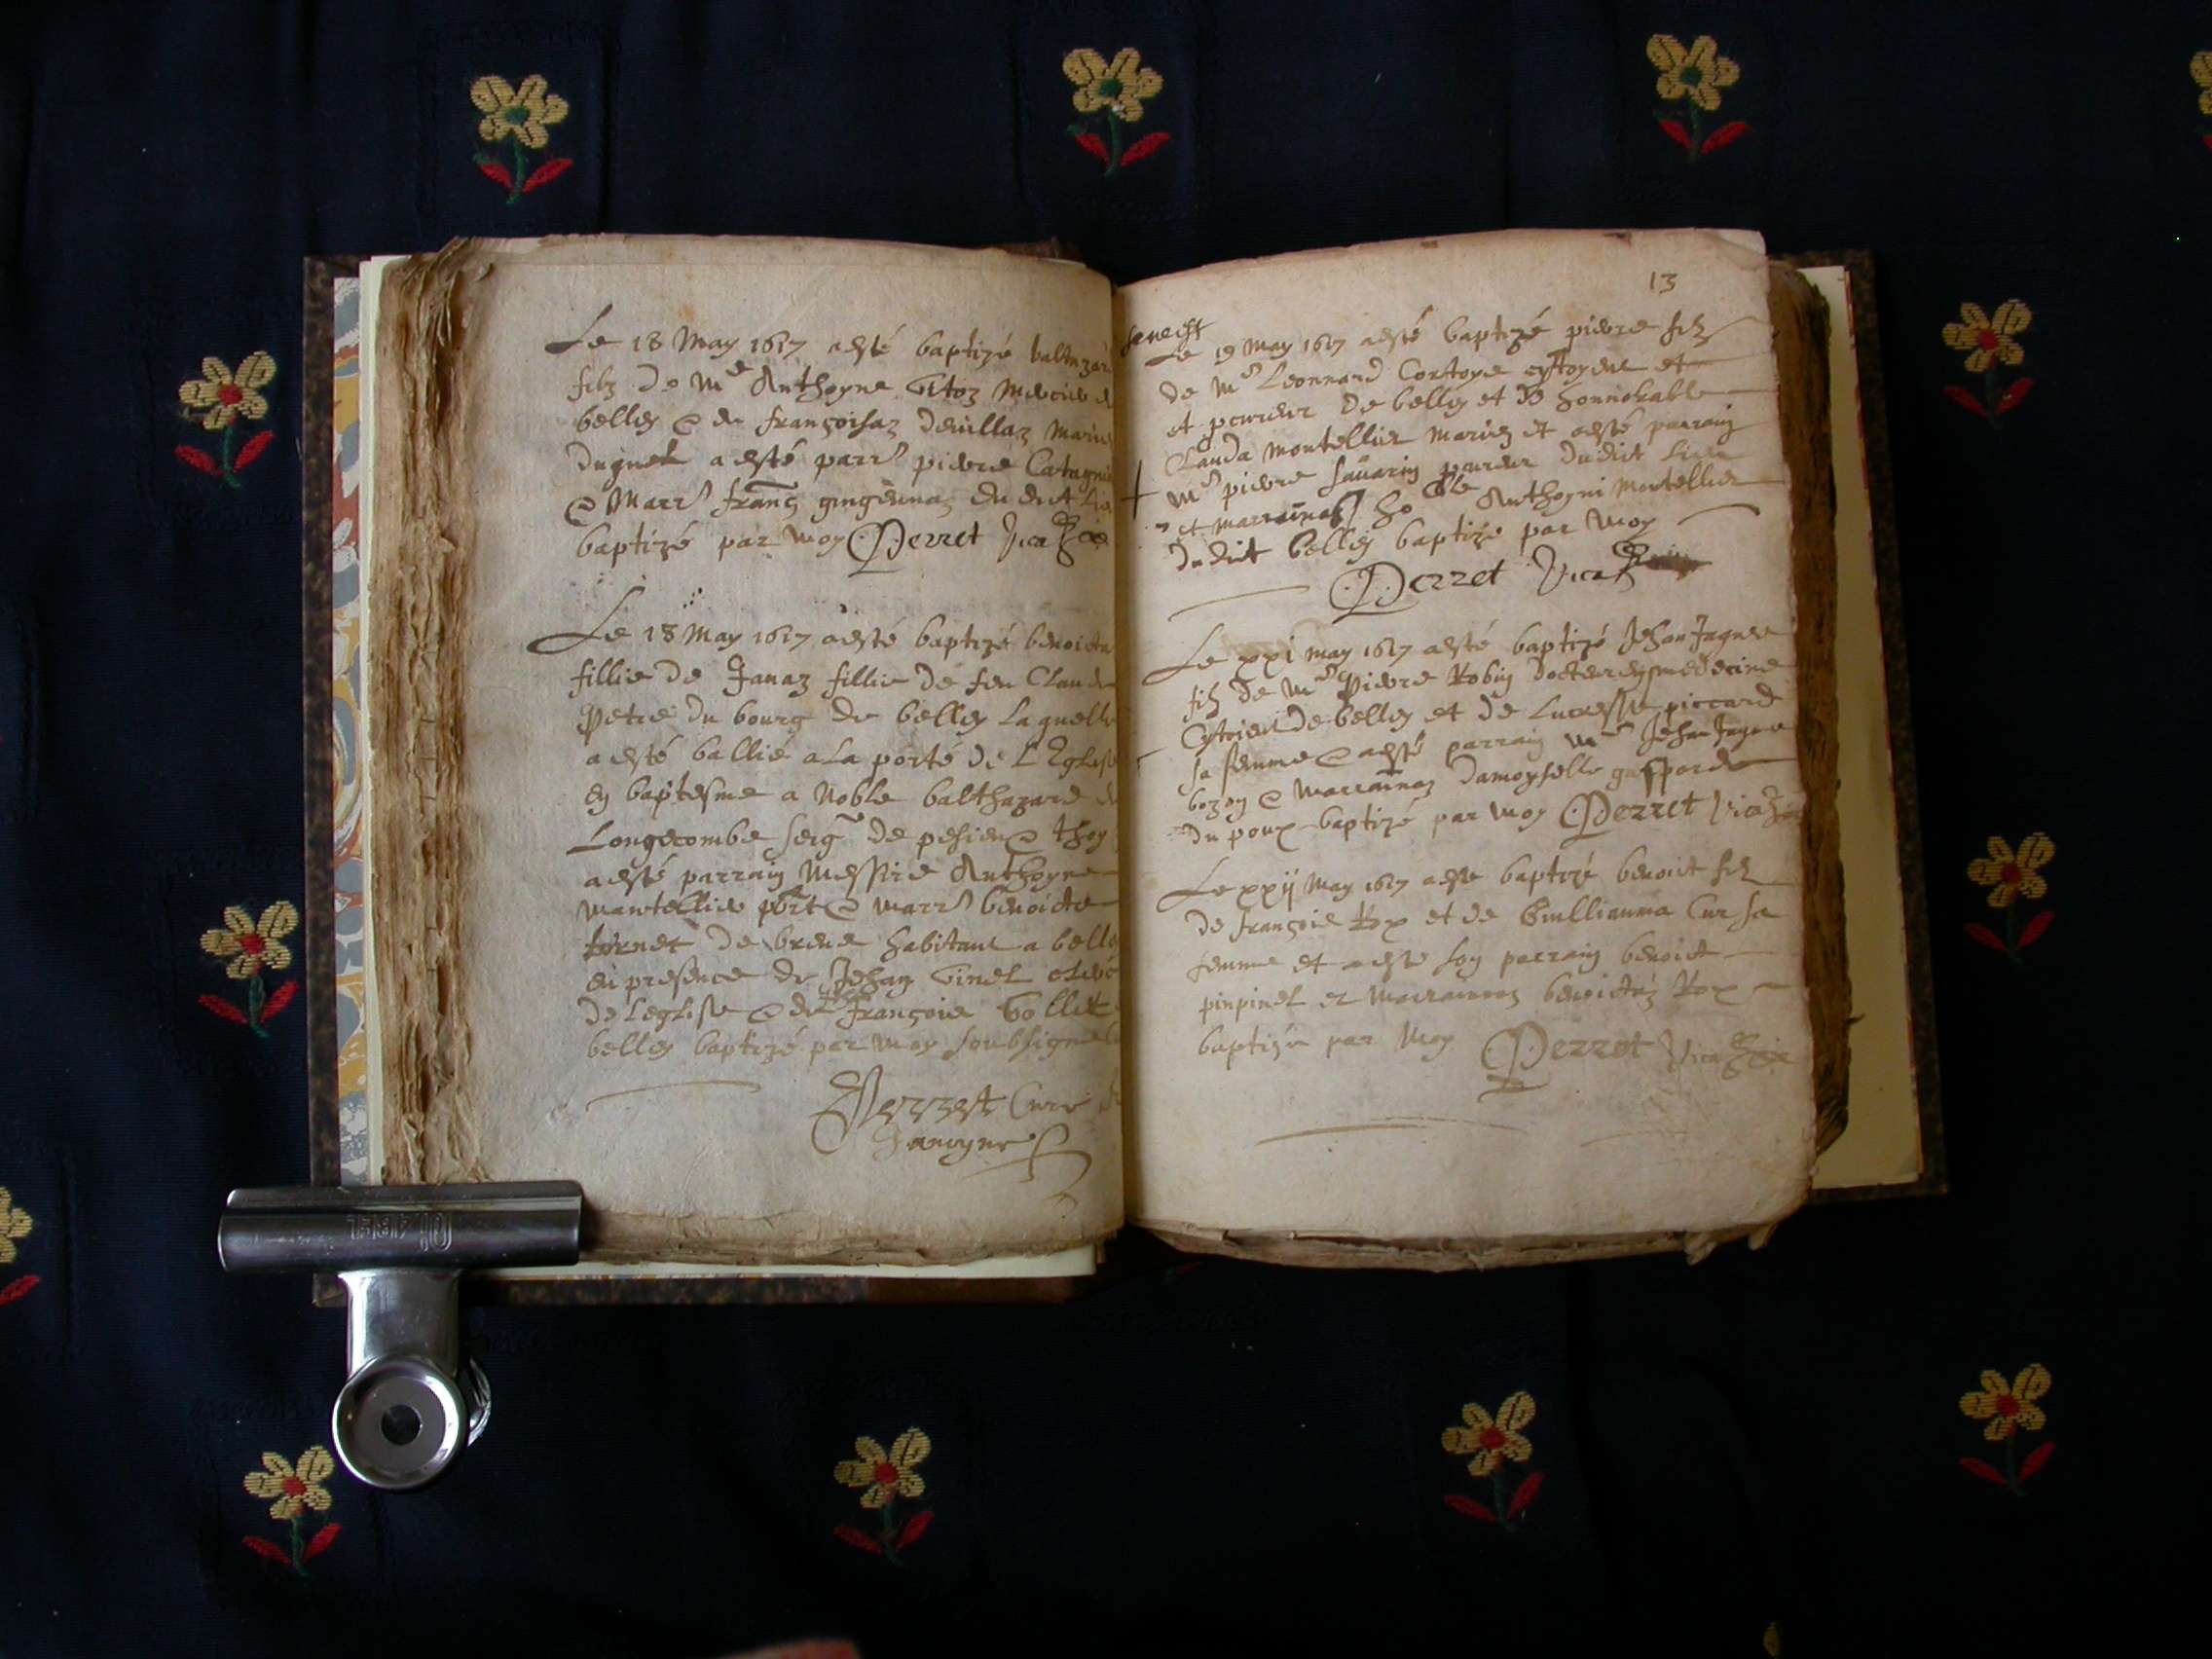 Le 18 May 1617 a esté baptizé baltazar
filz de Me Anthoyne
belley & de françoisaz devillaz
a esté parr pierre
& Marr franç du dit
baptizé par moy Perret Vicaire
Le 18 May 1617 a esté baptizé benoicte
fillie de Janaz fillie de feu Claude
petre du bourg de belley laquelle
a esté ballié a la porté de L'Eglise
en baptesme a Noble balthazard
Longecombe seigr de pesieu & thoy
a esté parrain Messire Anthoyne
& marr benoicte
de habitant a belley
en presence de Jehan
de Leglise & de françois
belley baptizé par moy soubsigné
Perret Curé
13
Le 19 May 1617 a esté baptizé pierre filz
de Me Leonnard Cortoys cytoyen et
et procureur de belley et d honnorable
Clauda montellier mariez et a esté parrain
Me pierre savarin procureur dudict lieu
et marrainaz ho ble Anthoyni Montellier
dudict belley baptizé par moy
Perret Vicaire
Le xxi may 1617 a esté baptizé Jehan Jaques
filz de Me Pierre Robin docteur en medecine
Cytoien de belley et de Lucresse piccard
sa femme & a esté parrain Me Jehan Jaques
& marrainaz damoyselle gasparde
du poux baptizé par moy Perret Vicaire
Le xxij May 1617 a este baptizé benoict filz
de françois Rox et de Guilliauma Cur sa
femme et a este son parrain benoict
pinpinel et Marrainaz benoictaz Rox
baptizé par Moy Perret Vicaire